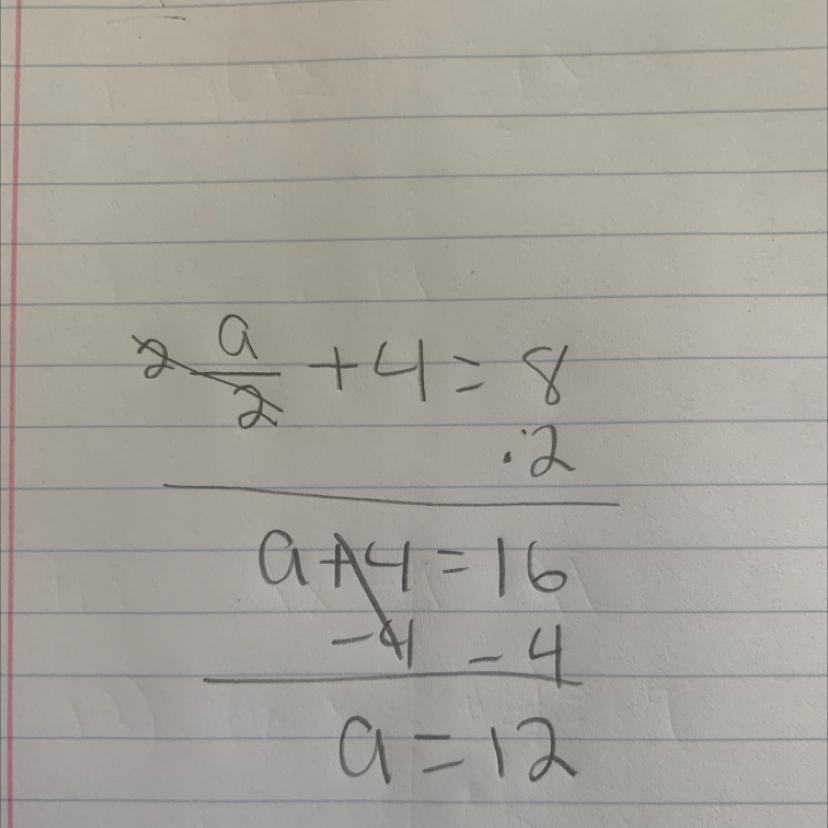 2 a/2 + 4 = 8
·2
a + 4 = 16
- 4 - 4
a = 12